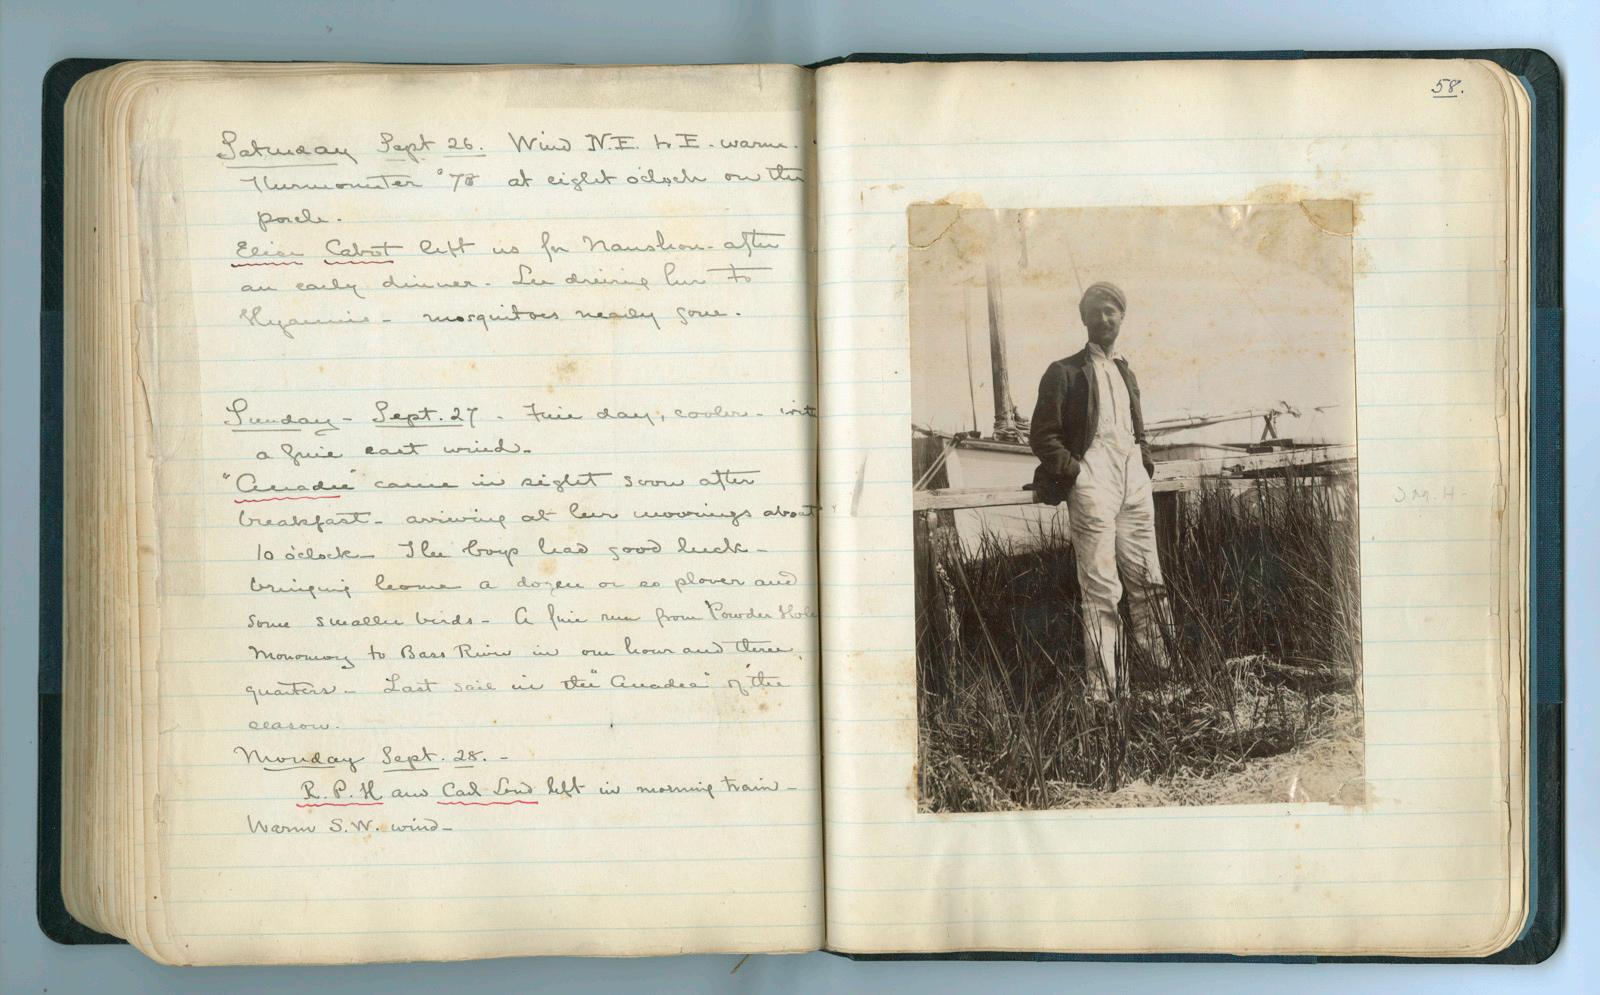 58.
Saturday Sept 26. Wind N.E. to E. warm.
Thermometer °78 at eight o'clock on the
porch.
Elise Cabot left us for Naushon - after
an early dinner. Lee driving her to
Hyannis - mosquitoes nearly gone.
Sunday - Sept. 27 - Fine day, cooler - with
a fine east wind -
"Anadee" came in sight soon after
breakfast - arriving at her moorings about
10 o'clock - The boys had good luck -
bringing home a dozen or so plover and
some smaller birds - A fine run from Powder Hole
Monomoy to Bass River in one hour and three
quarters - Last sail in the "Anadee" of the
season.
Monday Sept. 28. -
R. P. H and Carl left in morning train -
Warm S.W. wind -
J.M.H-